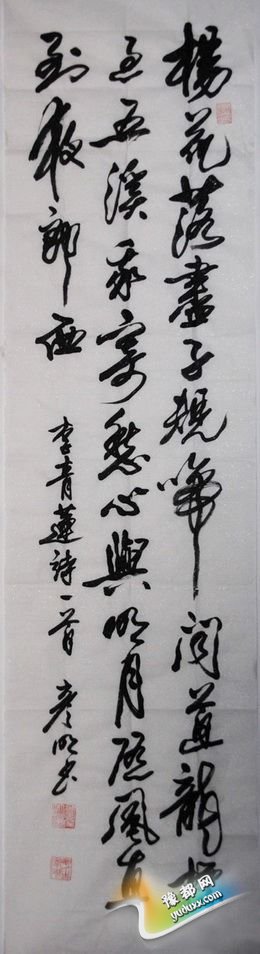 楊花落盡子規啼聞道龍標
過五溪我寄愁心與明月隨風直
到夜郎西
李青蓮詩一首 彦明书
豫都网
yuduxx.com